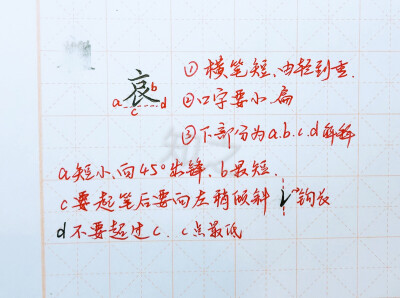 ①横笔短、由轻到重.
哀
a b c d
②口字要小、扁
③下部分为a.b.c.d
a短小、向45°出锋、b最短.
c要起笔后要向左稍倾斜 钩长
d不要超过c. c点最低